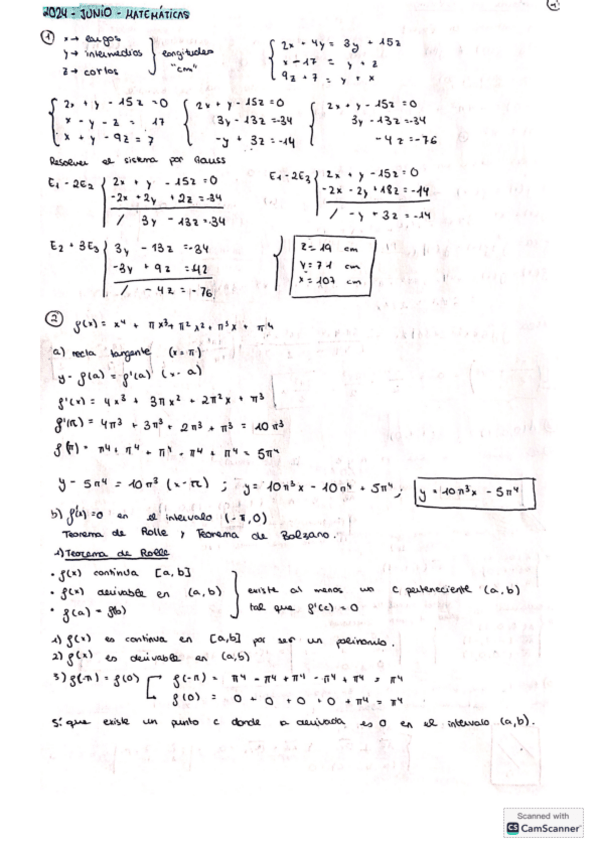 2024 - JUNIO - MATEMÁTICAS
① x → largos
y → intermedios
z → cortos
longitudes "cm"
2x + 4y = 3y + 15z
x - 17 = y + z
9z + 7 = y + x
2x + y - 15z = 0
x - y - z = 17
x + y - 9z = 7
2x + y - 15z = 0
3y - 13z = -34
-y + 3z = -14
2x + y - 15z = 0
3y - 13z = -34
-4z = -76
Resolver el sistema por Gauss
E₁ - 2E₂ 2x + y - 15z = 0
-2x + 2y + 2z = -34
/ 3y - 13z = -34
E₁ - 2E₃ 2x + y - 15z = 0
-2x - 2y + 18z = -14
/ -y + 3z = -14
E₂ + 3E₃ 3y - 13z = -34
-3y + 9z = -42
/ - 4z = -76
z = 19 cm
y = 71 cm
x = 107 cm
② f(x) = x⁴ + πx³ + π²x² + π³x + π⁴
a) recta tangente (x = π)
y - f(a) = f'(a) (x - a)
f'(x) = 4x³ + 3πx² + 2π²x + π³
f'(π) = 4π³ + 3π³ + 2π³ + π³ = 10π³
f(π) = π⁴ + π⁴ + π⁴ + π⁴ + π⁴ = 5π⁴
y - 5π⁴ = 10π³ (x - π) ; y = 10π³x - 10π⁴ + 5π⁴ ; y = 10π³x - 5π⁴
b) f'(x) = 0 en el intervalo (-π, 0)
Teorema de Rolle y Teorema de Bolzano.
1) Teorema de Rolle
• f(x) continua [a, b]
• f(x) derivable en (a, b)
• f(a) = f(b)
existe al menos un c perteneciente (a, b)
tal que f'(c) = 0
1) f(x) es continua en [a, b] por ser un polinomio.
2) f(x) es derivable en (a, b)
3) f(-π) = f(0) f(-π) = π⁴ - π⁴ + π⁴ - π⁴ + π⁴ = π⁴
f(0) = 0 + 0 + 0 + 0 + π⁴ = π⁴
Sí que existe un punto c donde a derivada es 0 en el intervalo (a, b).
Scanned with
CS CamScanner